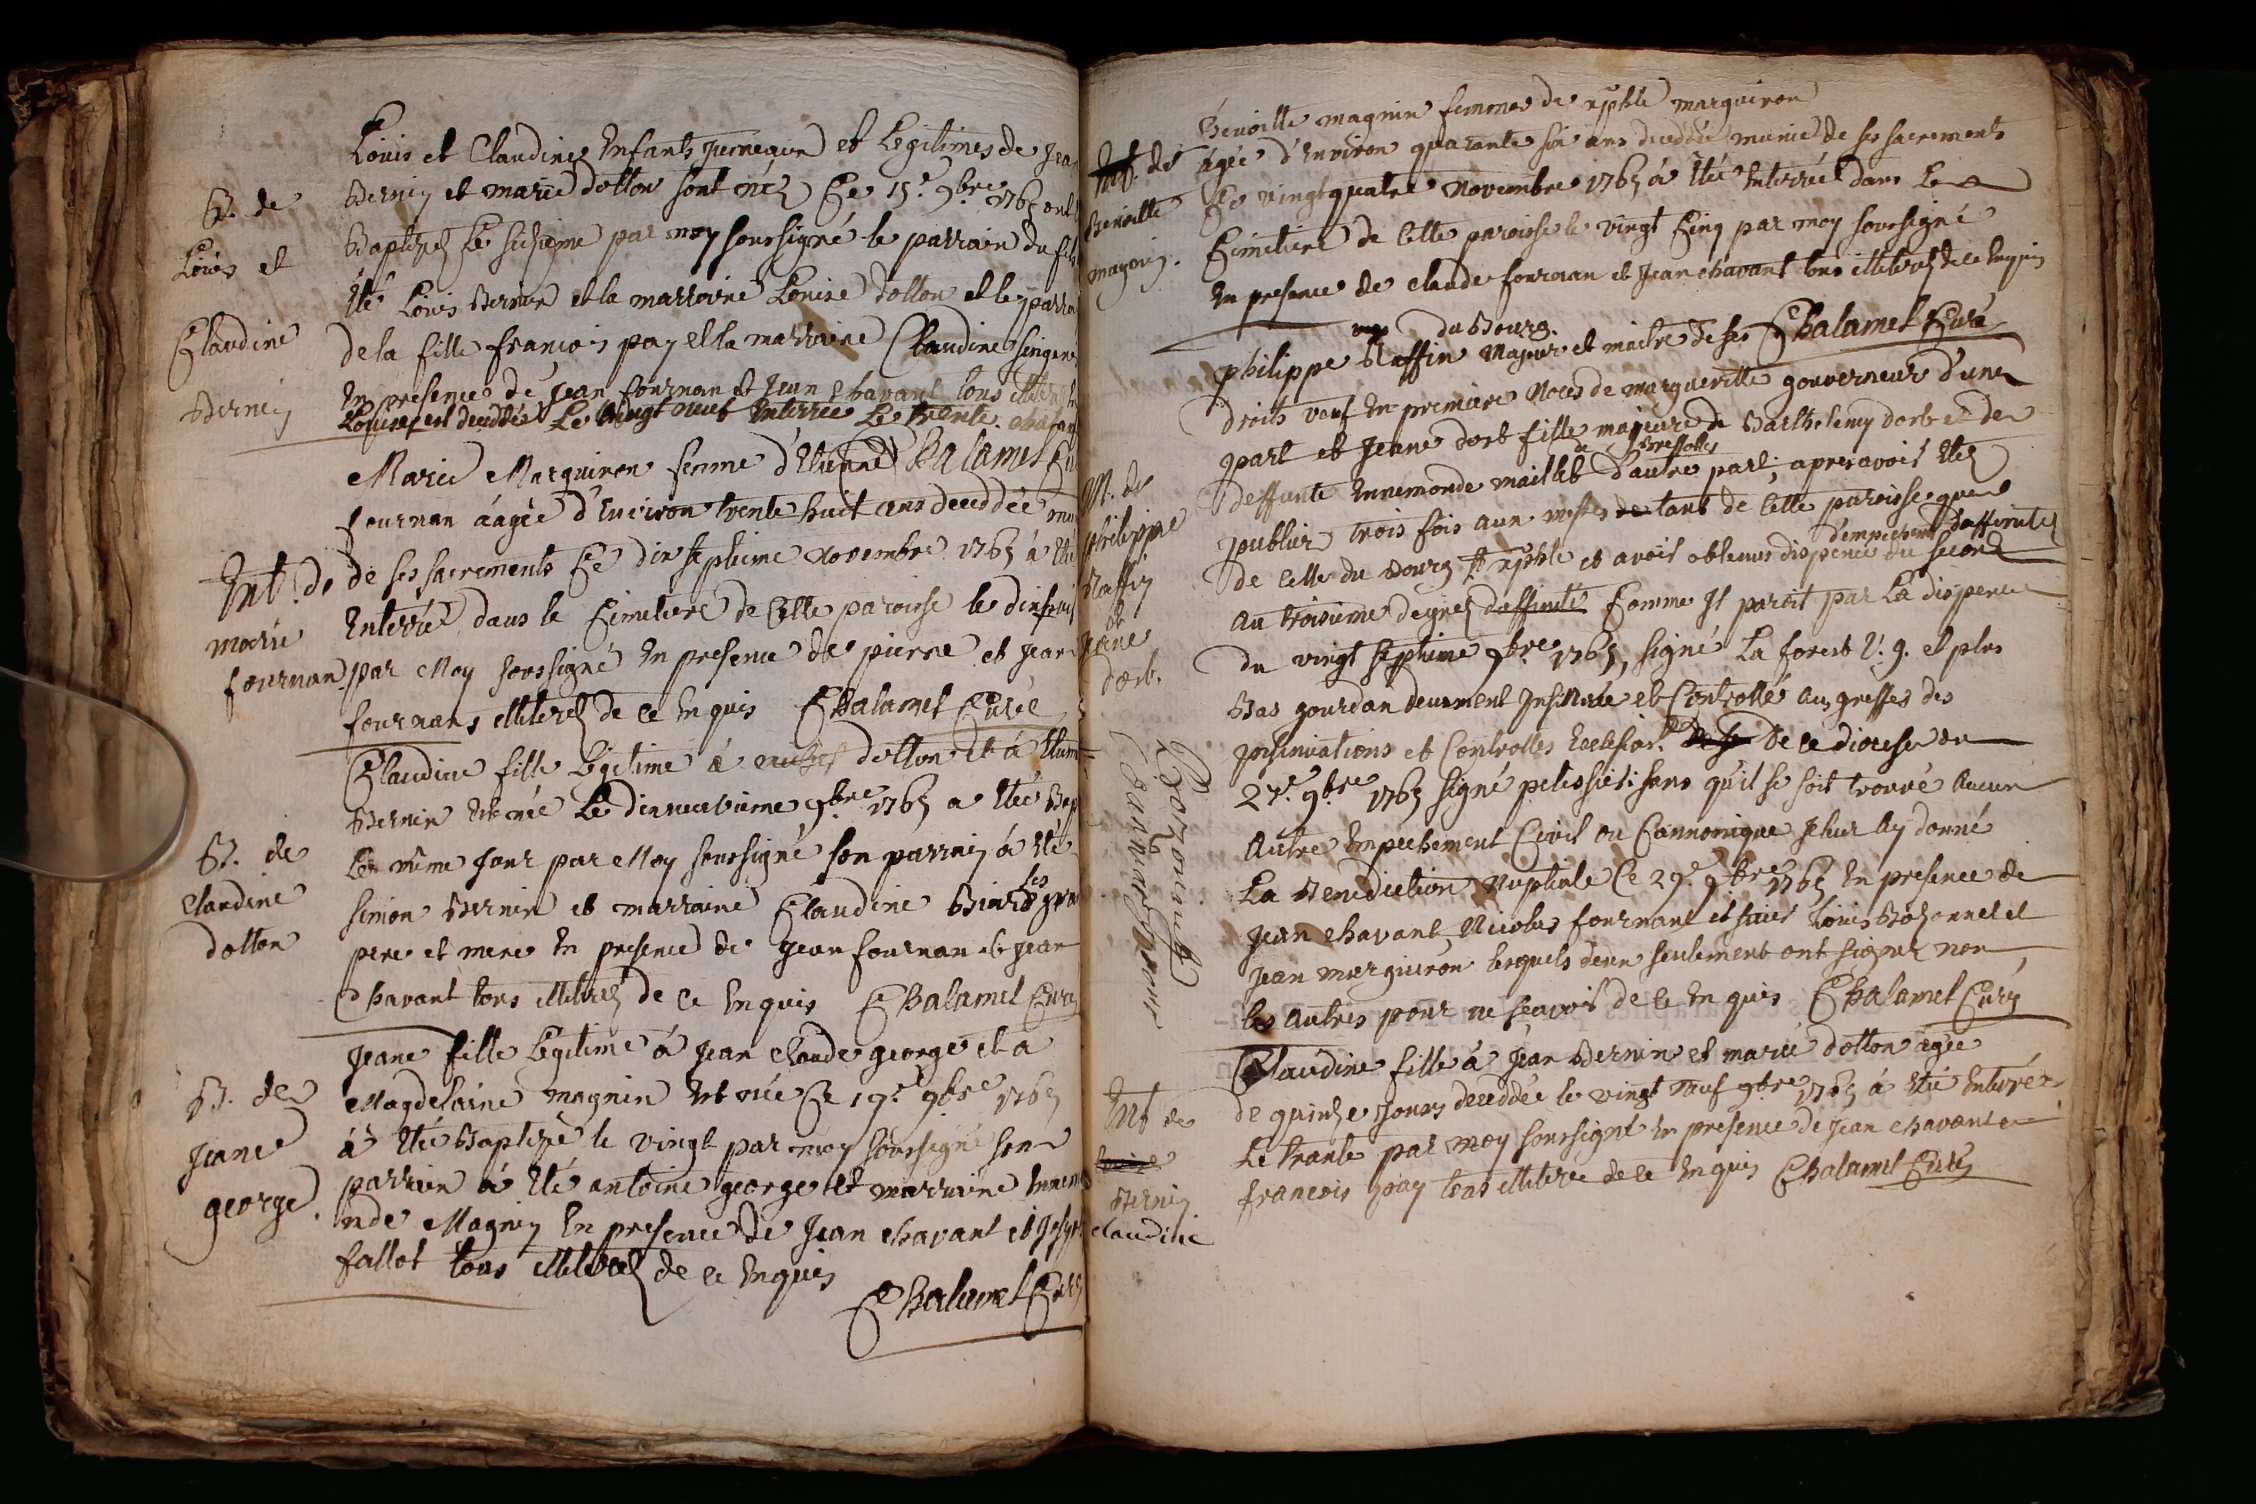 B. de
Loüis et
Claudine
Bernin
Loüis et Claudine Enfants jumeaux et Legitimes de Jean
Bernin et marie dotton sont néz Ce 15e. 9bre 1765 ont
Baptizéz Le sizieme par moy soussigné le parrain du fils
Eté Loüis Bernin et la marraine Loüise dotton et le parrain
de la fille francois pay et la marraine Claudine
En presence de Jean fournan et Jean Chavant tous
est deceddée Le vingt neuf Enterrée Le trente.
Int. de
marie
fournan
Marie Marguiron femme d'Etienne Chalamel Curé
fournan aâgée d'Environ trente huit ans deceddée munie
de ses sacrements Ce dix septieme novembre 1765 à Eté
Enterrée dans le Cimetiere de Cette paroisse le dix
par Moy soussigné En presence de pierre et Jean
fournans illiteréz de ce Enquis Chalamel Curé
B. de
Claudine
dotton
Claudine fille Legitime à dotton et à
Bernin Est née Le dixneuvieme 9bre 1765 a Eté
Le même Jour par Moy soussigné son parrain à Eté
Simon Bernin et marraine Claudine ses
pere et mere En presence de Jean fournan et Jean
Chavant tous illiteréz de ce Enquis Chalamel Curé
B. de
Jeane
george
Jeane fille Legitime à Jean Claude george et a
Magdelaine magnin Est née Ce 19e 9bre 1765
à Eté Baptizée le vingt par moy soussigné son
parrain à Eté antoine george et marraine
nde Magnin En presence de Jean Chavant et
fallot tous illiteréz de ce Enquis
Chalamel Curé
Int. de
Benoitte
magnin.
Benoitte magnin femme de marguiron
âgée d'Environ quarante six ans deceddée munie de ses sacrements
Ce vingt quatre Novembre 1765 à Eté Enterrée dans Le
Cimetiere de Cette paroisse le vingt Cinq par moy soussigné
En presence de Claude fournan et Jean Chavant tous illiteréz de ce Enquis
Chalamel Curé
M. de
philippe
Raffin
et
Jeane
dorb.
du Bourg.
philippe Raffin Majeur et maitre de ses
droits veuf En premiere Noces de margueritte gouverneur d'une
part et Jeane dorb fille majeure de Barthelemy dorb et de
deffunte Ennemonde maillet d'autre part, apres avoir Eté
publiéz trois fois aux messes tant de Cette paroisse que
de celle du Bourg et avoir obtenus dispence du second
d'empechement d'affinité
au troisieme degréz Comme Il paroit par La dispence
du vingt septieme 9bre 1765, signé La forest V. g. et plus
Bas gourdan deuement Insinuée et Controllé au greffes des
Insinuations et Controlles de ce diocese du
27e. 9bre 1765 signé pelissier: sans qu'il se soit trouvé Aucun
Autre Empechement Civil ou Cannonique Je leur Ay donné
La Benediction Nuptiale Ce 29e. 9bre 1765 En presence de
Jean Chavant, Nicolas fournant et Loüis Bozonnet et
Jean marguiron lesquels deux seulement ont signéz non
les autres pour ne sçavoir de ce Enquis Chalamel Curé
Bozonnet
Int de
Bernin
Claudine
Claudine fille à Jean Bernin et marie dotton agée
de quinze jours deceddée le vingt neuf 9bre 1765 à Eté Enterrée
Le trante par moy soussigné En presence de Jean Chavant
francois pay tous illiteréz de ce Enquis Chalamel Curé